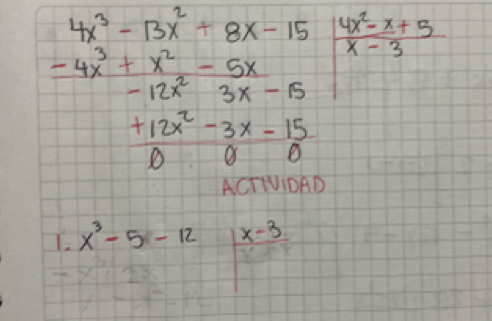 4x³ - 13x² + 8x - 15 | 4x² - x + 5
- 4x³ + x² - 5x | x - 3
- 12x² 3x - 15
+ 12x² - 3x - 15
0 0 0
ACTIVIDAD
1. x³ - 5 - 12 | x - 3